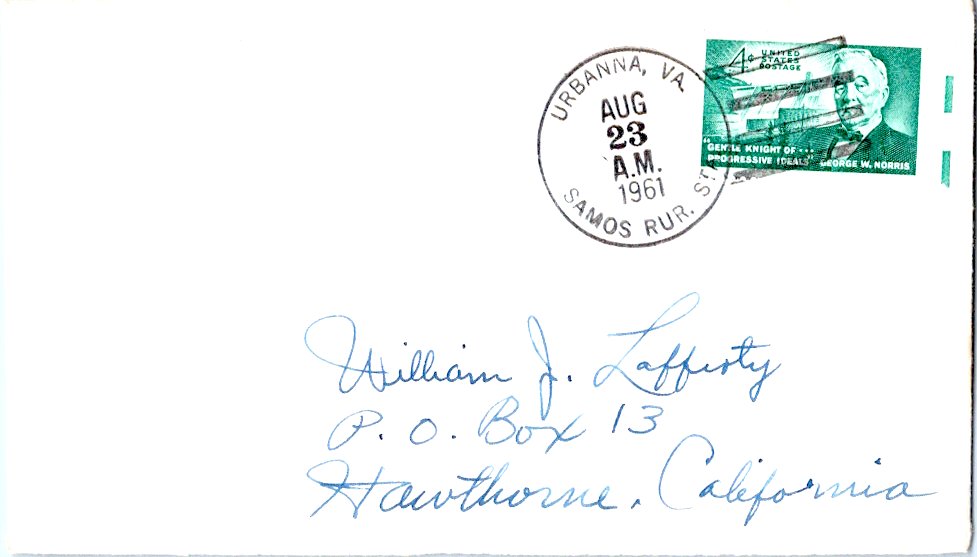 URBANNA, VA.
AUG
23
A.M.
1961
SAMOS RUR. STA.
4¢ UNITED
STATES
POSTAGE
"GENTLE KNIGHT OF ...
PROGRESSIVE IDEALS" GEORGE W. NORRIS
William J. Lafferty
P. O. Box 13
Hawthorne, California